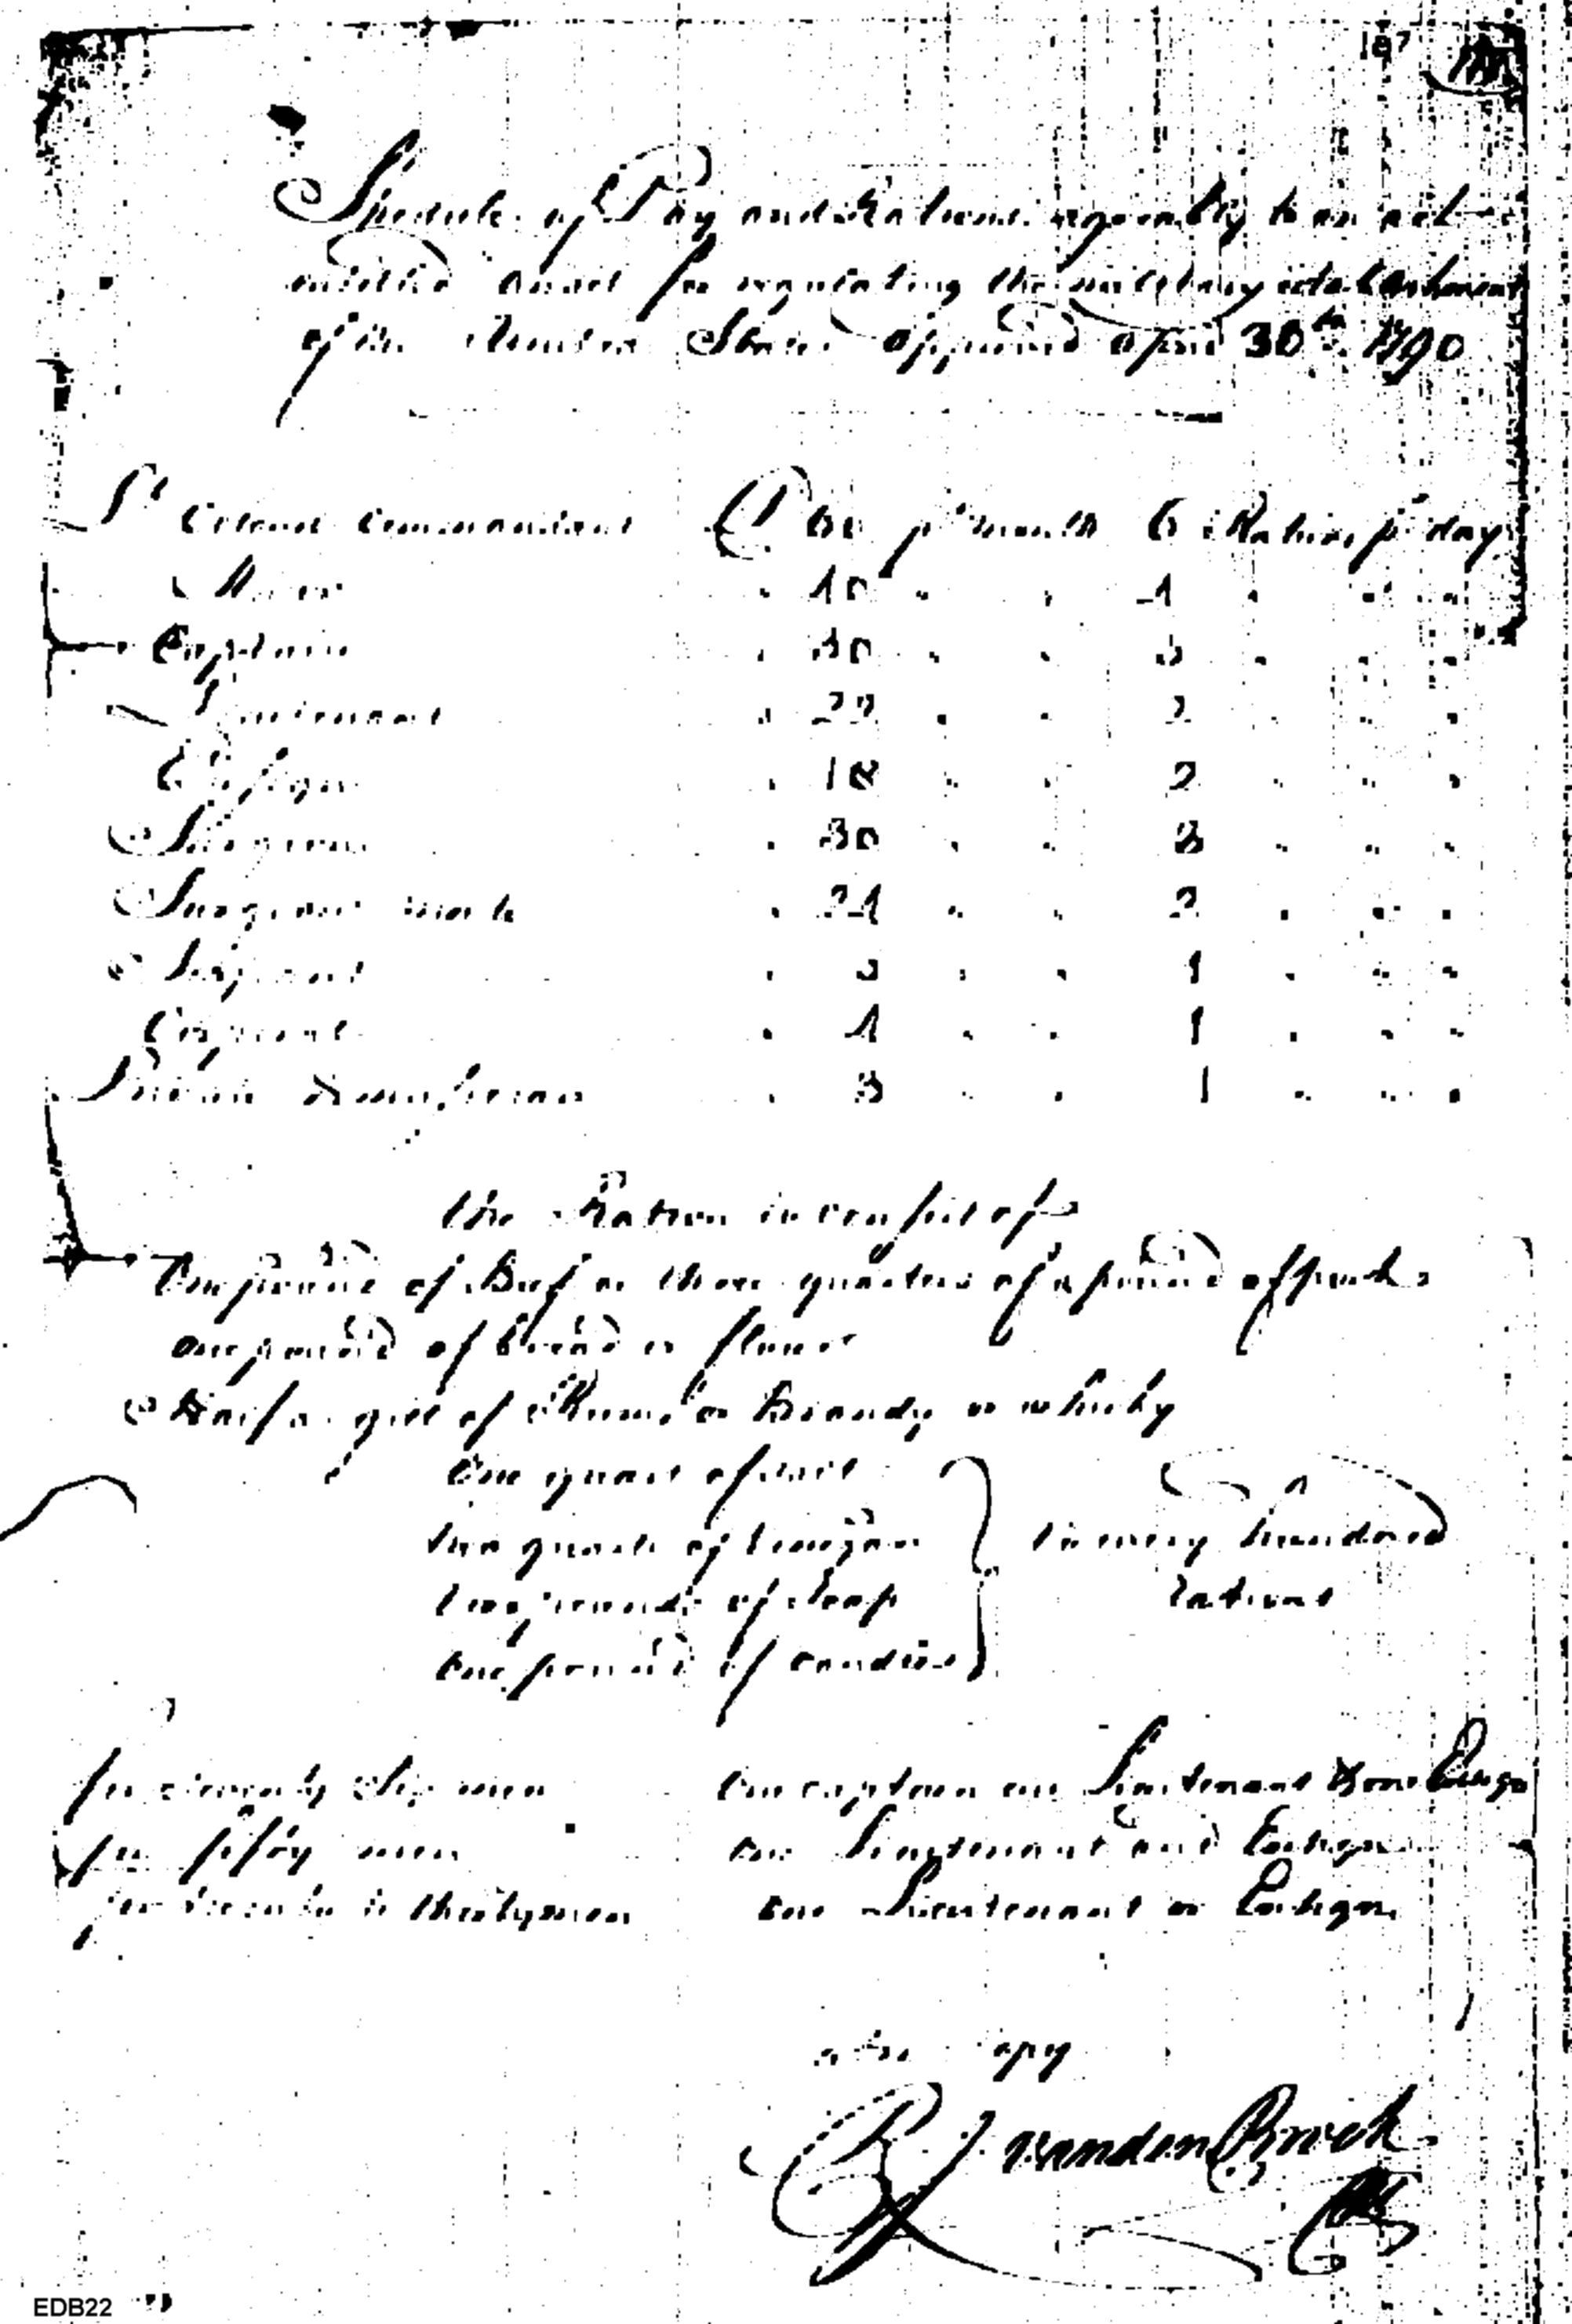 187
Shedule of Pay and Rations agreeably to an act
entitled an act for regulating the military establishment
of the United States approved april 30th 1790
Lt Colonel Commandant 60 pr month 6 Rations pr day
Major " 40 " " 4 " " "
Captain " 30 " " 3 " " "
Lieutenant " 22 " " 2 " " "
Ensign " 18 " " 2 " " "
Surgeon " 30 " " 3 " " "
Surgeons mate " 24 " " 2 " " "
Serjeant " 5 " " 1 " " "
Corporal " 4 " " 1 " " "
" 3 " " 1 " " "
the Ration to consist of
One pound of Beef or three quarters of a pound of pork
One pound of bread or flour
Half a gill of Rum or Brandy or whisky
One quart of salt
two quarts of vinegar to every hundred
two pounds of Soap rations
One pound of candles
for seventy Six men One captain one Lieutenant & one Ensign
for fifty men One Lieutenant and Ensign
for to thirty men One Lieutenant or Ensign
a true copy
R J. vandenBroek
EDB22